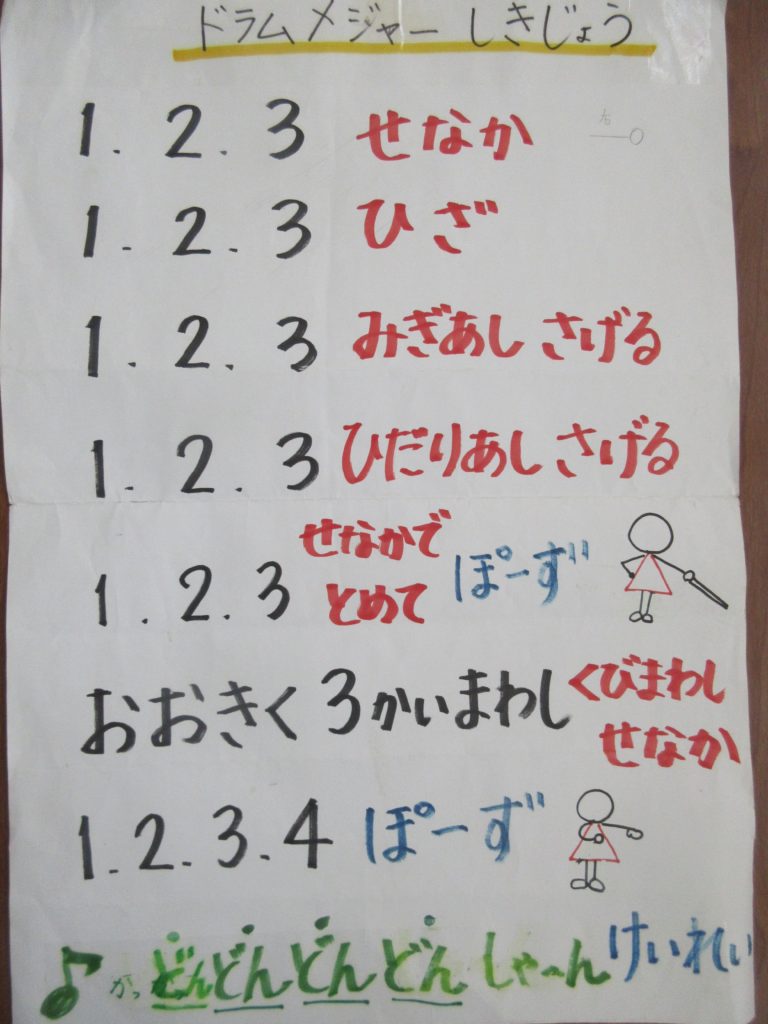 ドラムメジャー しきじょう
1. 2. 3 せなか
1. 2. 3 ひざ
1. 2. 3 みぎあし さげる
1. 2. 3 ひだりあし さげる
1. 2. 3 せなかで とめて ぽーず
おおきく 3かいまわし くびまわし せなか
1. 2. 3. 4 ぽーず
♪ がっ どん どん どん どん しゃ〜ん けいれい